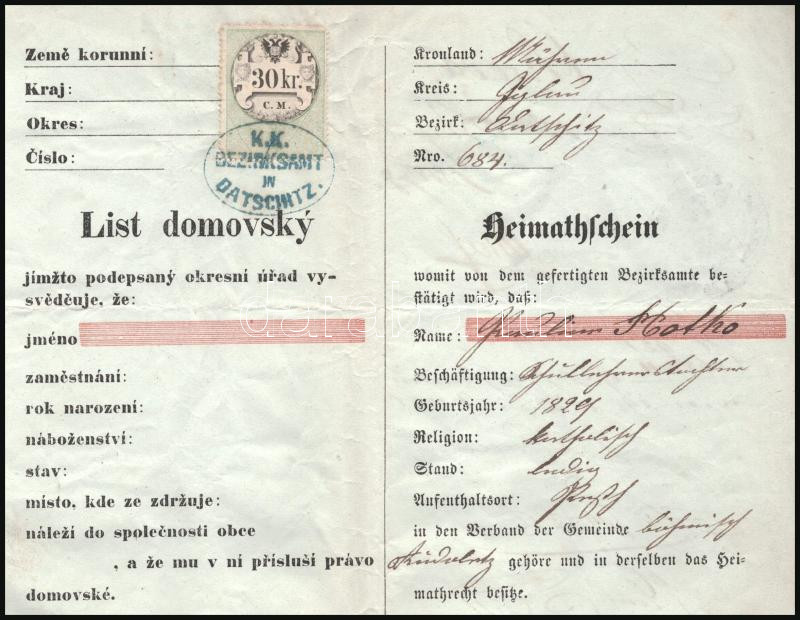 Země korunní:
Kraj:
Okres:
Číslo:
30 kr.
C. M.
K.K.
BEZIRKSAMT
IN
DATSCHITZ.
List domovský
jímžto podepsaný okresní úřad vy-
svědčuje, že:
jméno
zaměstnání:
rok narození:
náboženství:
stav:
místo, kde ze zdržuje:
náleží do společnosti obce
, a že mu v ní přísluší právo
domovské.
Kronland: Mähren
Kreis: Iglau
Bezirk: Datschitz
Nro. 684.
Heimathſchein
womit von dem gefertigten Bezirksamte be-
ſtätigt wird, daß:
Name: Hotko
Beſchäftigung: Schullehrerstochter
Geburtsjahr: 1829
Religion: katholisch
Stand: ledig
Aufenthaltsort: Pesth
in den Verband der Gemeinde böhmisch
Rudoletz gehöre und in derſelben das Hei-
mathrecht beſitze.